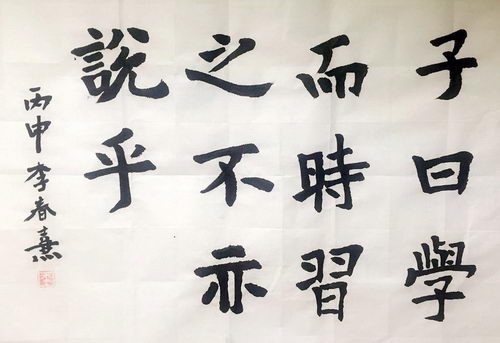 子曰學
而時習
之不亦
說乎
丙申李春熹